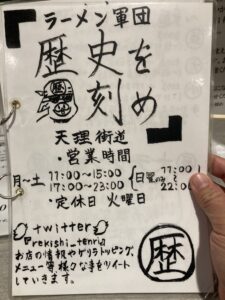 ラーメン軍団
歴史を
刻め
天理街道
・営業時間
月〜土 11:00〜15:00
17:00〜23:00
(日曜の
11:00
〜
22:00)
・定休日 火曜日
twitter
『rekishi_tenri』
お店の情報やゲリラトッピング、
メニュー等様々な事をツイート
していきます。
歴